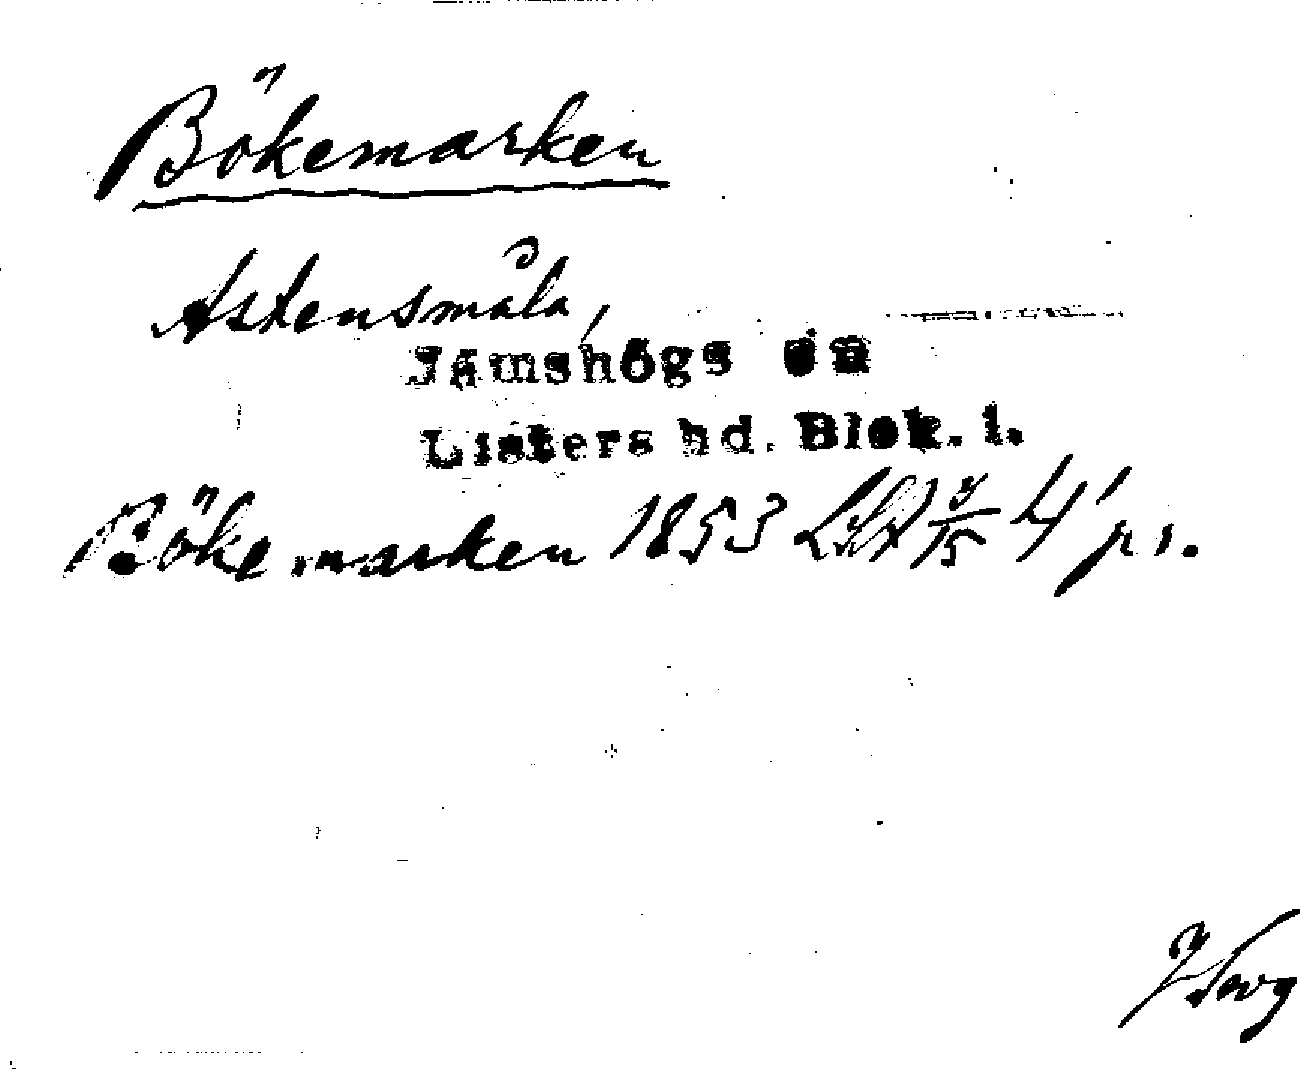 Bökemarken
Askensmåla,
Jämshögs sn
Listers hd. Blek. l.
Bökemarken 1853 4 /15 4' ps.